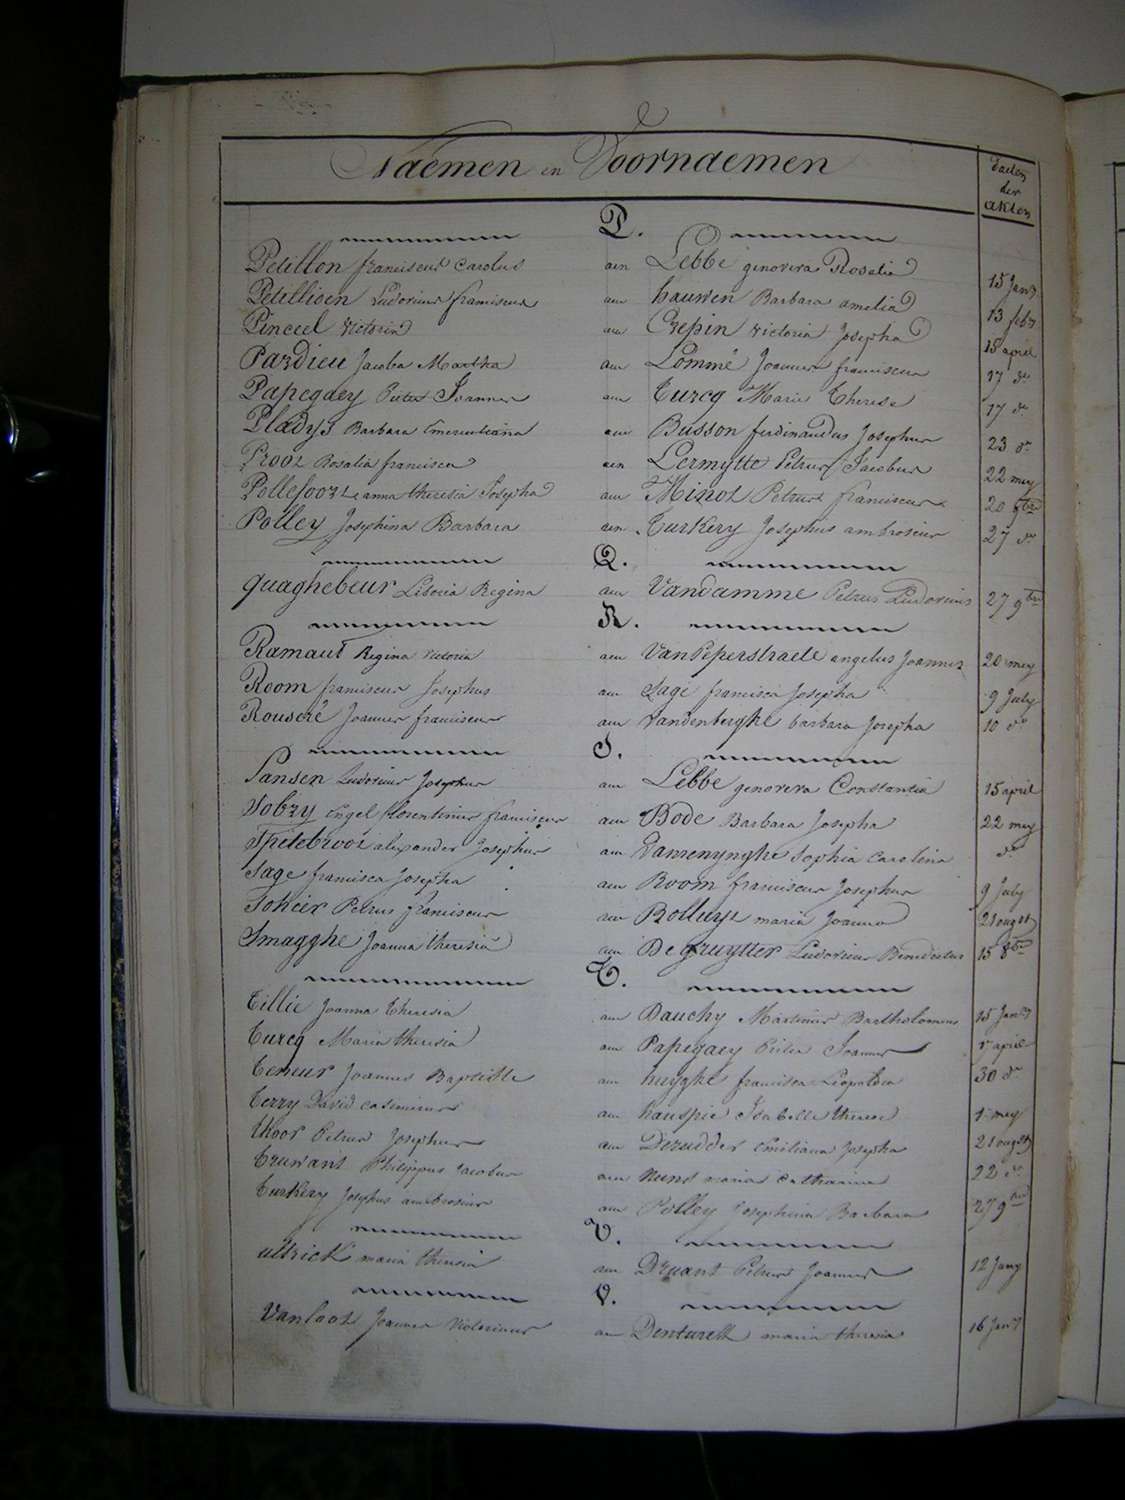 Naemen en Voornaemen
Daeten der akten
P.
Petillon franciscus Carolus aen Lebbe genoveva Rosalia 15 Jany
Petillioen Ludovicus franciscus aen hauwen Barbara amelia 13 febr
Pinceel Victoria aen Crepin victoria Josepha 15 april
Pardieu Jacoba Martha aen Lommé Joannes franciscus 17 do
Papegaey Pieter Joannes aen Turcq Marie Therese 17 do
Pladys Barbara Emerentiana aen Busson ferdinandus Josephus 23 do
Proot Rosalia francisca aen Lermytte Petrus Jacobus 22 mey
Pollefoort anna theresia Josepha aen Minot Petrus franciscus 20 9bre
Polley Josephina Barbara aen Turkery Josephus ambrosius 27 do
Q.
quaghebeur Liboria Regina aen Vandamme Petrus Ludovicus 27 9bre
R.
Ramaut Regina victoria aen VanPeperstraete angelus Joannes 20 mey
Room franciscus Josephus aen Sage francisca Josepha 9 July
Rouseré Joannes franciscus aen Vandenberghe barbara Josepha 10 do
S.
Sansen Ludovicus Josephus aen Lebbe genoveva Constantia 15 april
Sobry Engel florentinus franciscus aen Bode Barbara Josepha 22 mey
Spitebroot alexander Josephus aen Sophia Carolina do
Sage francisca Josepha aen Room franciscus Josephus 9 July
Sohier Petrus franciscus aen Bolluyt maria Joanna 21 augst
Smagghe Joanna theresia aen Degruytter Ludovicus Benedictus 15 8bre
T.
Tillie Joanna Theresia aen Bauchy Martinus Bartholomeus 15 Jany
Turcq Maria theresia aen Papegaey Pieter Joannes april
Teneur Joannes Baptiste aen huyghe francisca Leopoldia 30 do
Terry David casimirus aen hauspie Isabelle therese 1 mey
thoor Petrus Josephus aen Derudder Emiliana Josepha 21 augst
Truwant Philippus Jacobus aen nuns maria catharina 22 do
Turkery Josephus ambrosius aen Polley Josephina Barbara 27 9bre
U.
ultrick maria theresia aen Druant Petrus Joannes 12 Juny
V.
Vanloot Joannes Victorinus aen Denturck maria theresia 16 Jany